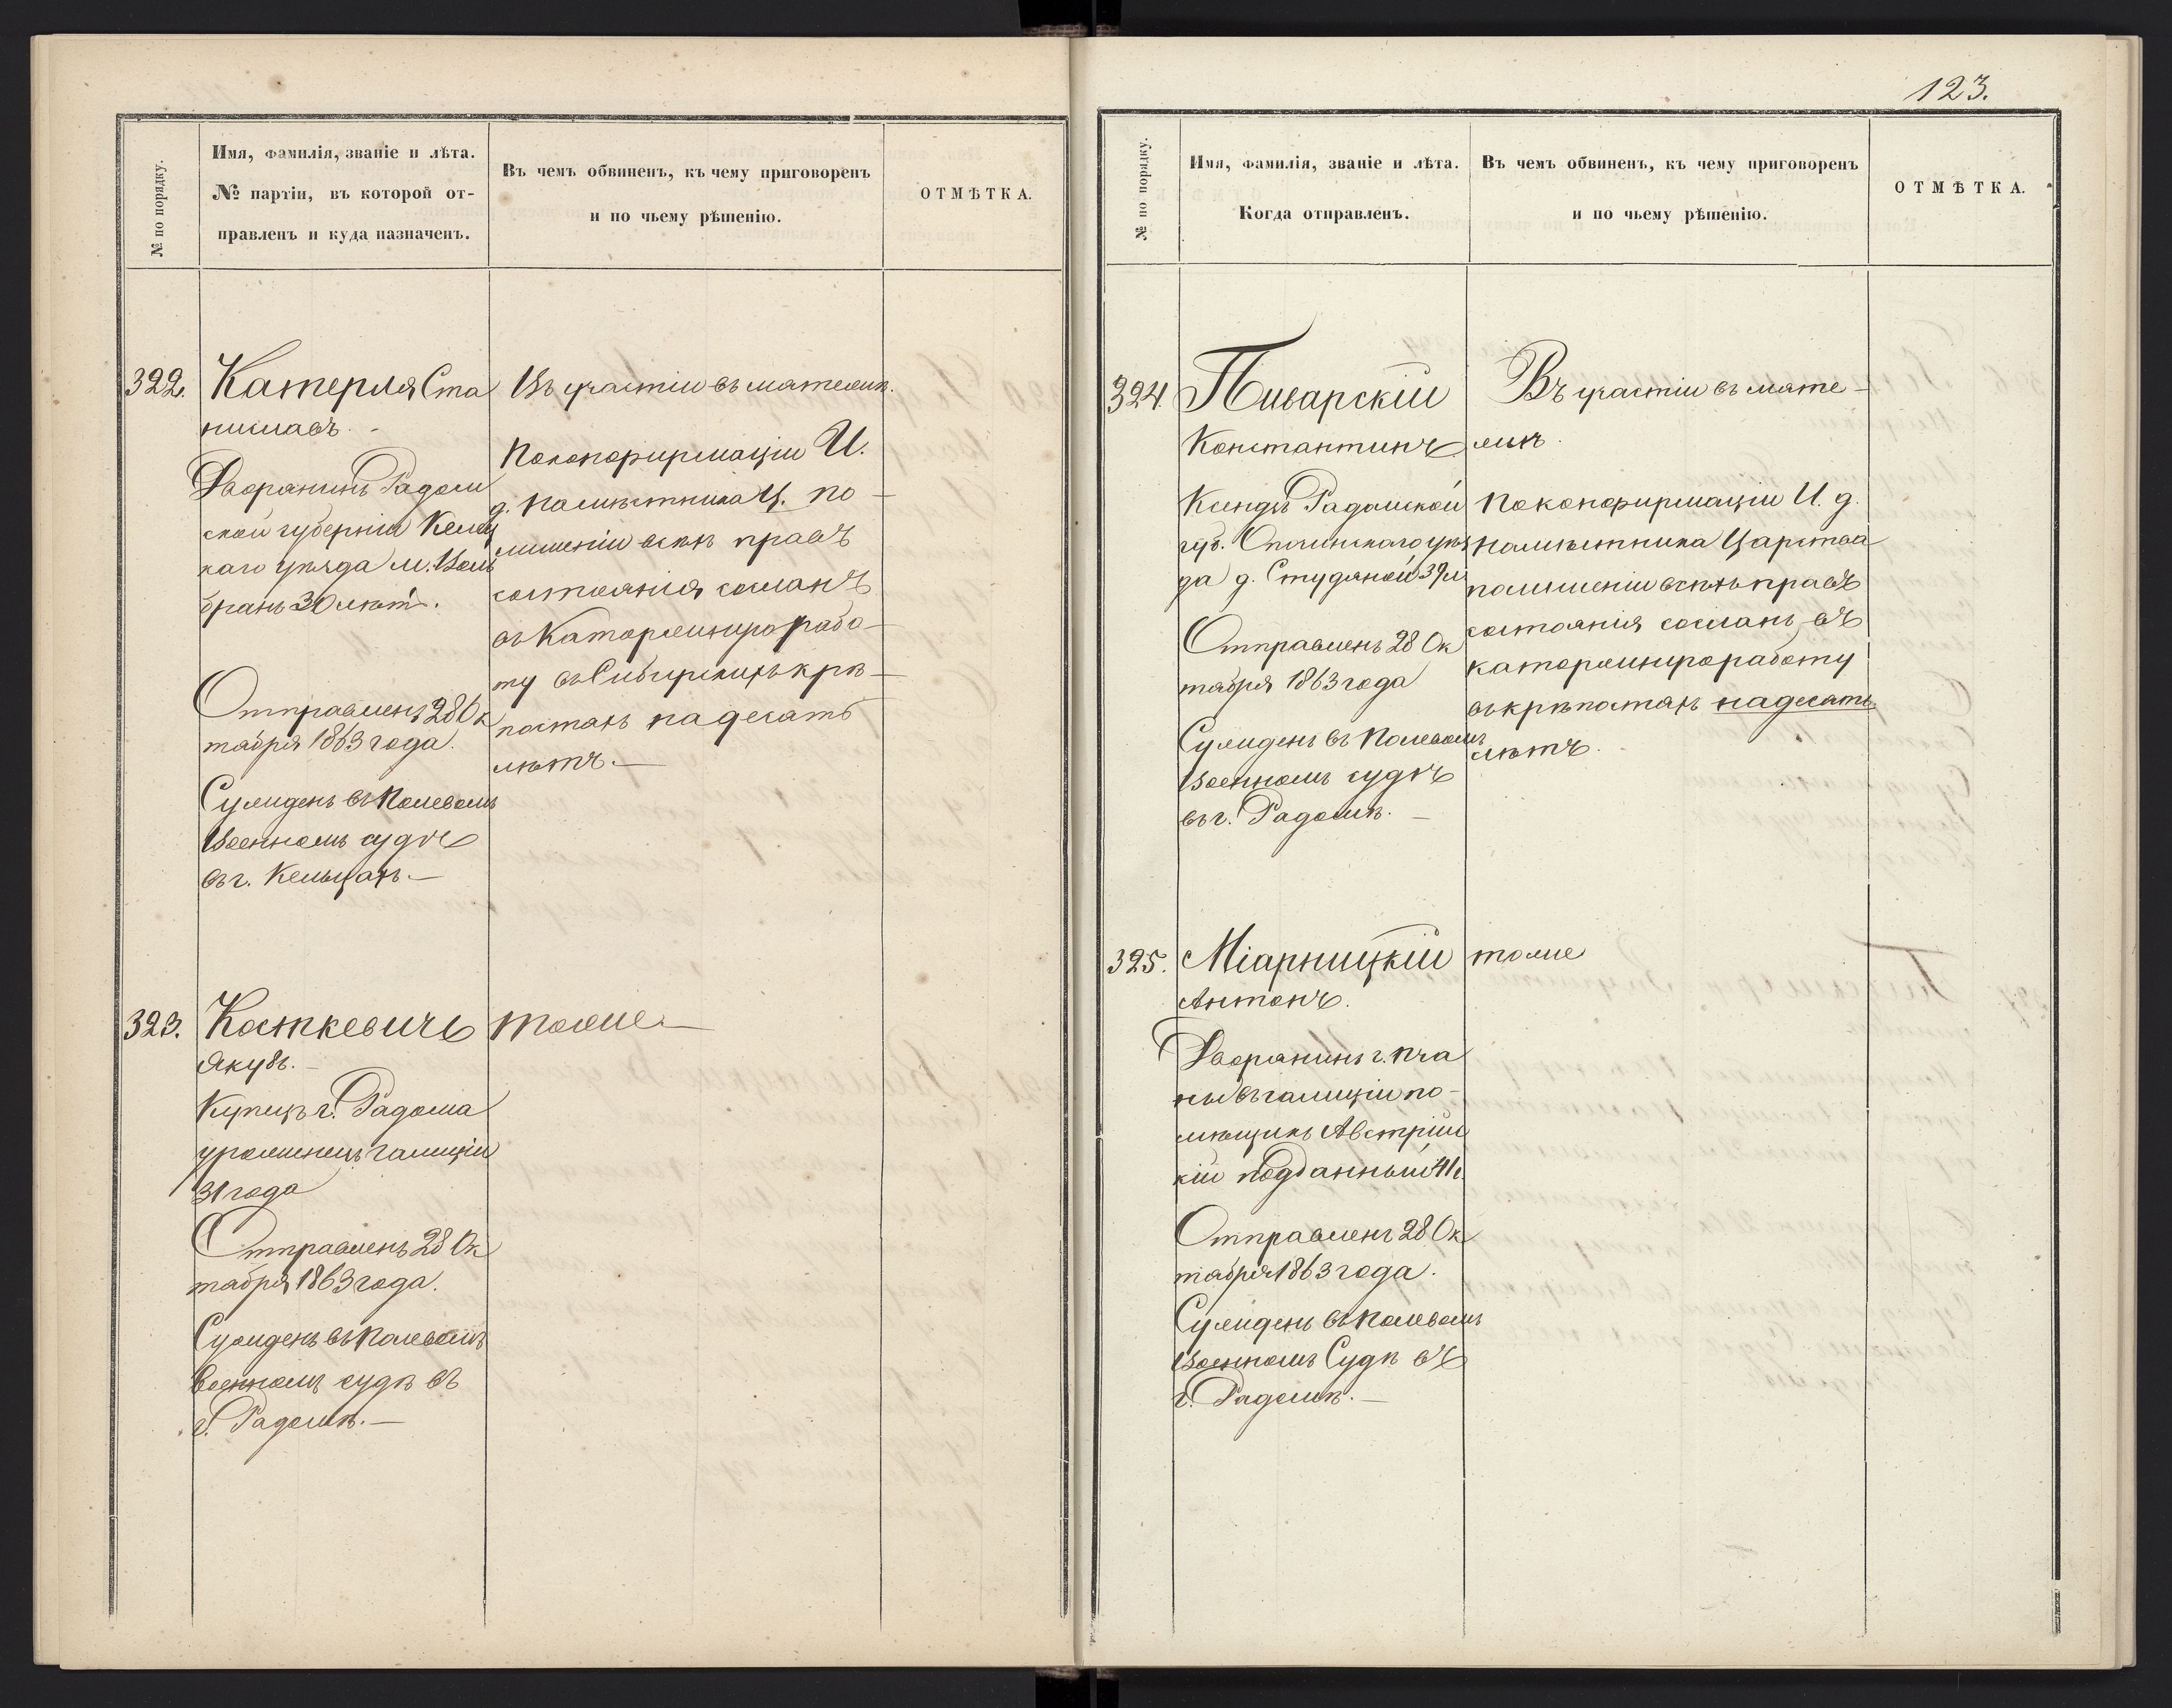 № по порядку.
Имя, фамилія, званіе и лѣта.
№ партіи, въ которой от-
правленъ и куда назначенъ.
Въ чемъ обвиненъ, къ чему приговоренъ
и по чьему рѣшенію.
ОТМѢТКА.
322.
Катерля Ста
ниславъ.
Дворянинъ Радом
ской губерніи Келец
каго уѣзда м. Воль
бранъ 30 лѣтъ.
Отправленъ 28 Ок
тября 1863 года.
Сужденъ въ Полевомъ
Военномъ судѣ
въ г. Кельцахъ.—
Въ участіи въ мятежѣ.
По конфирмаціи И.
д. намѣстника Ц. по
лишеніи всѣхъ правъ
состоянія сосланъ
въ Каторжную рабо-
ту въ Сибирскихъ крѣ-
постяхъ на десять
лѣтъ.—
323.
Косткевичъ
Якубъ.—
Купецъ г. Радома
уроженецъ Галиціи
31 года
Отправленъ 28 Ок
тября 1863 года.
Сужденъ въ Полевомъ
Военномъ судѣ въ
г. Радомѣ.—
тоже.—
123.
№ по порядку.
Имя, фамилія, званіе и лѣта.
Когда отправленъ.
Въ чемъ обвиненъ, къ чему приговоренъ
и по чьему рѣшенію.
ОТМѢТКА.
324.
Пиварскій
Константинъ
Ксендзъ Радомской
губ. Опочинскаго уѣз
да д. Студяной 39 л
Отправленъ 28 Ок
тября 1863 года
Сужденъ въ Полевомъ
Военномъ судѣ
въ г. Радомѣ.—
Въ участіи въ мяте-
жѣ.
По конфирмаціи И. д.
намѣстника Царства
по лишеніи всѣхъ правъ
состоянія сосланъ въ
каторжную работу
въ крѣпостяхъ на десять
лѣтъ.
325.
Міарницкій
Антонъ.
Дворянинъ г.
ны въ Галиціи по-
мѣщикъ Австрійс
кій подданный 41 г.
Отправленъ 28 Ок
тября 1863 года.
Сужденъ въ Полевомъ
Военномъ Судѣ въ
г. Радомѣ.—
тоже